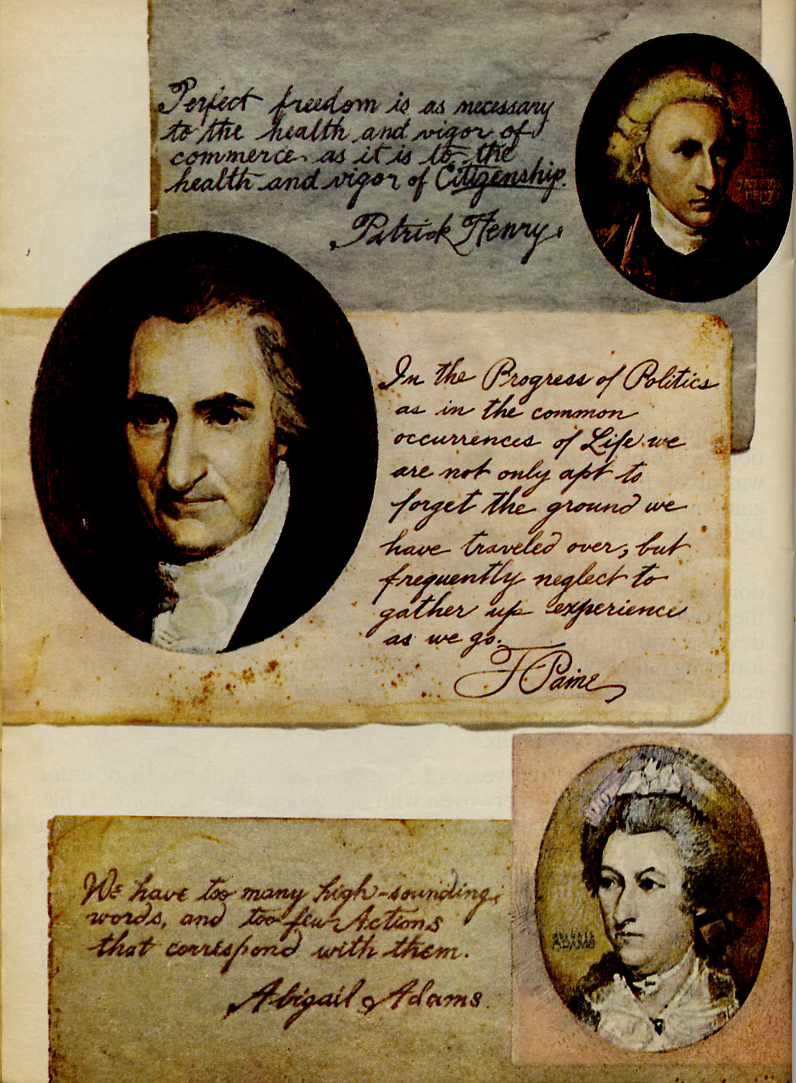 Perfect freedom is as necessary
to the health and vigor of
commerce as it is to the
health and vigor of Citizenship.
Patrick Henry.
PATRICK
HENRY
In the Progress of Politics
as in the common
occurrences of Life we
are not only apt to
forget the ground we
have traveled over, but
frequently neglect to
gather up experience
as we go.
T Paine
We have too many high-sounding
words, and too few Actions
that correspond with them.
Abigail Adams.
ABIGAIL
ADAMS